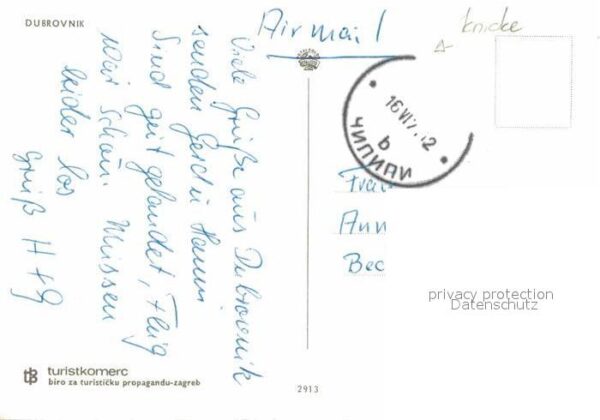 DUBROVNIK
Air mail
knicke
Viele Grüße aus Dubrovnik
senden Gerd u Hanni
Sind gut gelandet, Flug
war schön. Müssen
leider los
Gruß H + G
16 VII
b
ЧИЛИПИ
Frau
Ann
Bec
privacy protection
Datenschutz
turistkomerc
biro za turističku propagandu-zagreb
2913